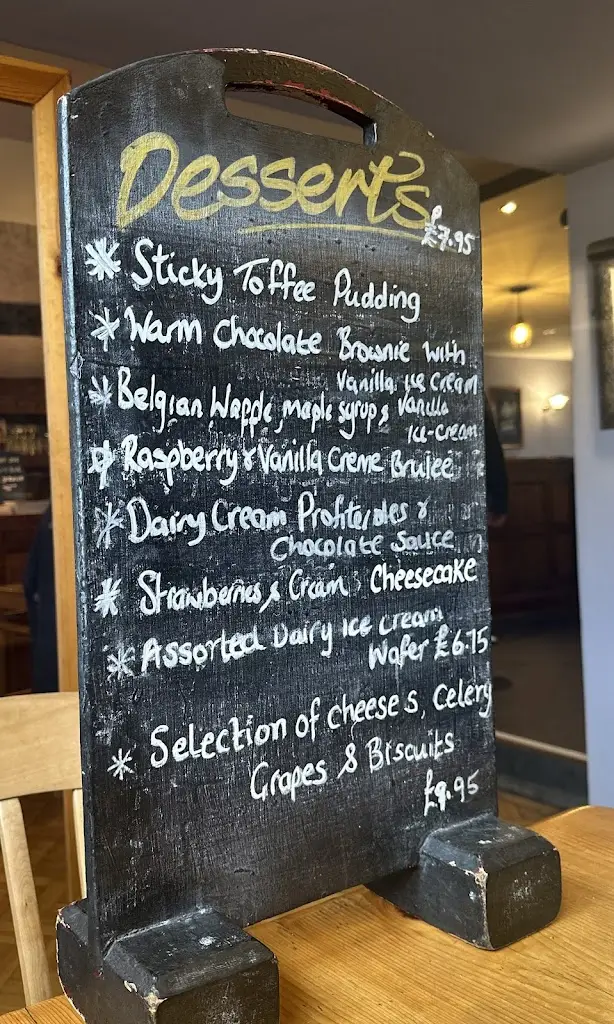 Desserts
£7.95
* Sticky Toffee Pudding
* Warm Chocolate Brownie with
Vanilla Ice Cream
* Belgian Waffle, maple syrup & Vanilla
Ice-Cream
* Raspberry & Vanilla Creme Brulee
* Dairy Cream Profiteroles &
Chocolate Sauce
* Strawberries & Cream Cheesecake
* Assorted Dairy Ice Cream
Wafer £6.75
* Selection of cheeses, Celery
Grapes & Biscuits
£9.95